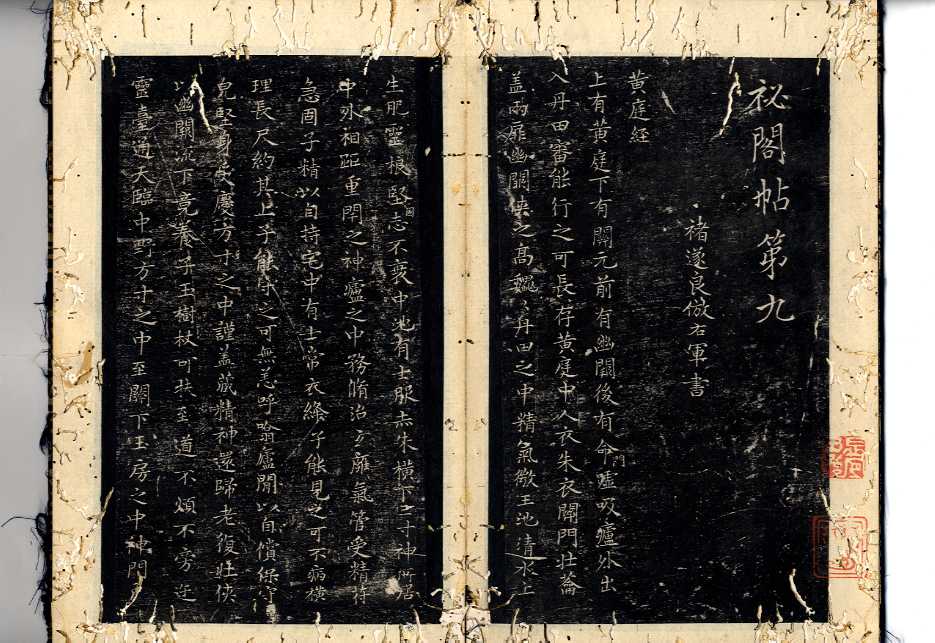 祕閣帖第九
褚遂良倣右軍書
黃庭経
上有黃庭下有關元前有幽闕後有命門噓吸廬外出
入丹田審能行之可長存黃庭中人衣朱衣關門壯蘥
盖兩扉幽關俠之高魏丹田之中精氣微玉池清水上
生肥靈根堅固志不衰中池有士服赤朱橫下三寸神所居
中外相距重閇之神廬之中務脩治玄癰氣管受精符
急固子精以自持宅中有士常衣絳子能見之可不病橫
理長尺約其上子能守之可無恙呼噏廬閒以自償保守
皃堅身受慶方寸之中謹盖藏精神還歸老復壯俠
以幽闕流下竟養子玉樹杖可扶至道不煩不旁迕
靈臺通天臨中野方寸之中至關下玉房之中神門